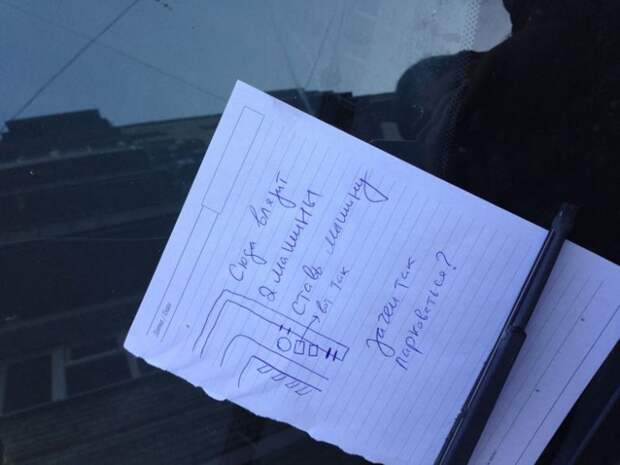 Сюда влезит
2 машины
ставь машину
вот так
зачем так
парковаться?